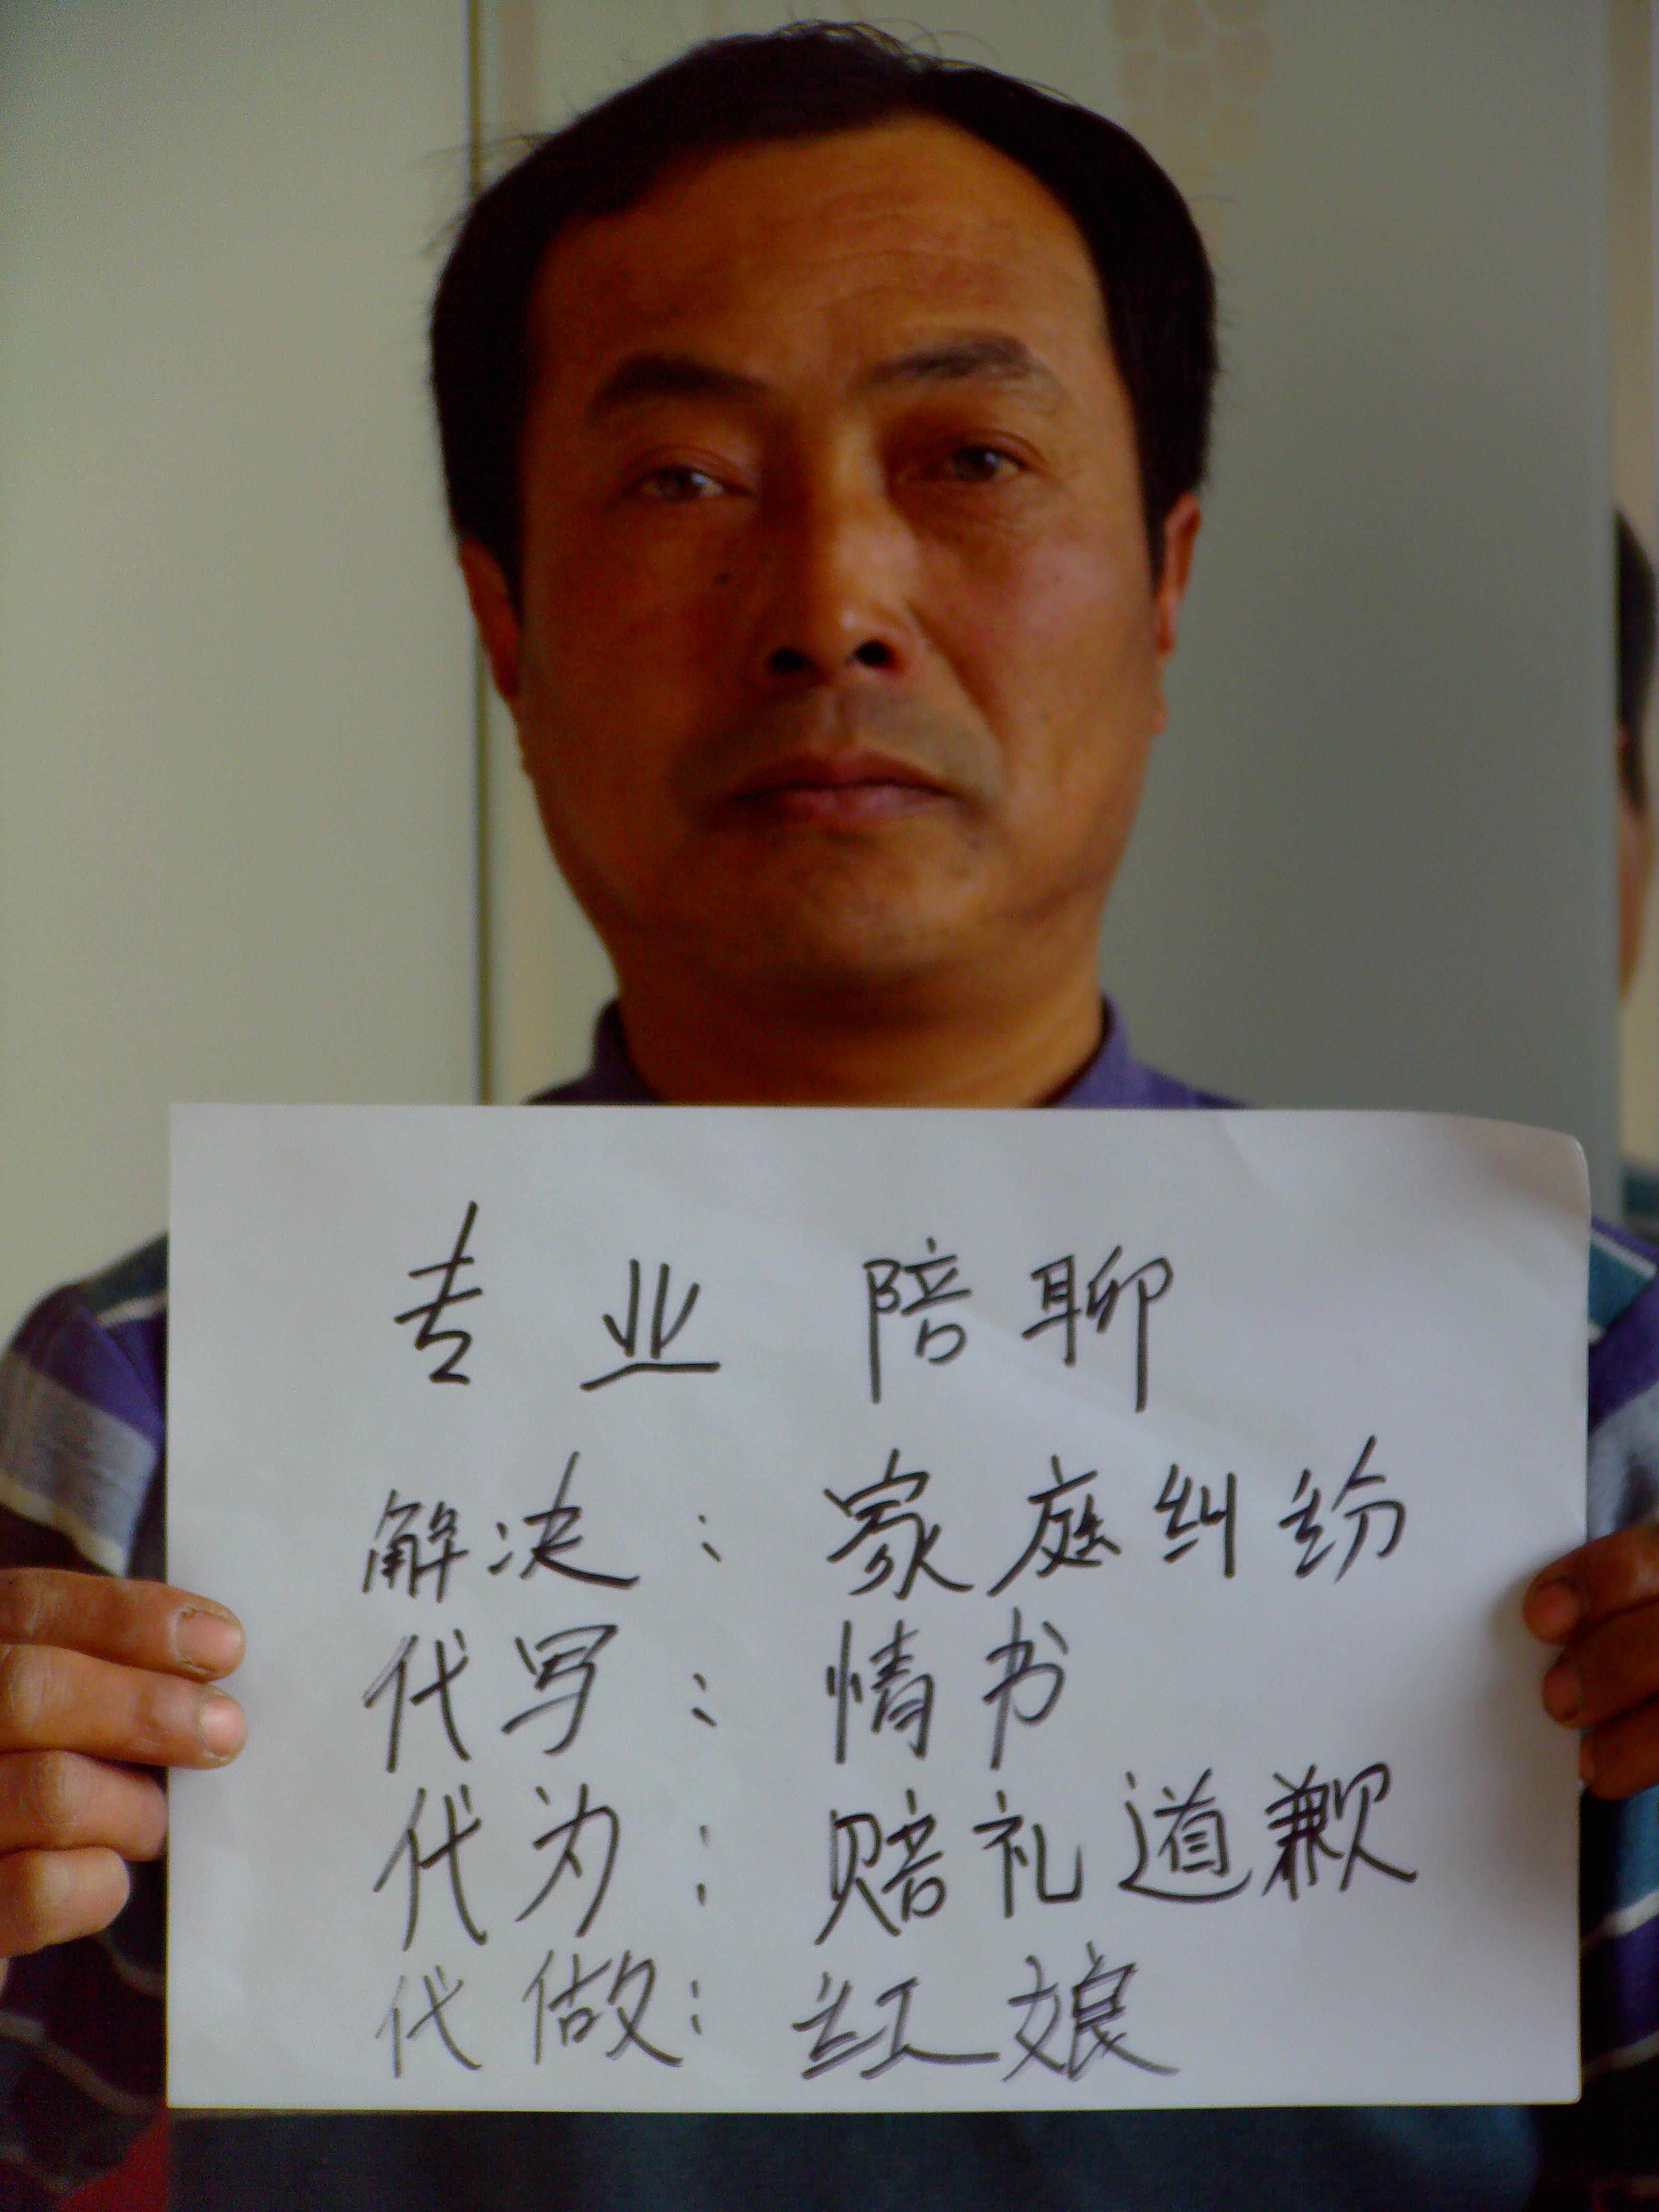 专业陪聊
解决：家庭纠纷
代写：情书
代为：赔礼道歉
代做：红娘